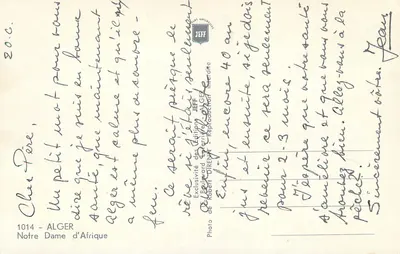 20.C.
Cher Père,
Un petit mot pour vous
dire que je suis en bonne
santé, que maintenant
Alger est calme et qu'il n'y
a même plus de couvre-
feu.
Ce serait presque de
seulement
Enfin, encore 40 en
jus et ensuite si je dois
revenir ce sera seulement
pour 2-3 mois.
J'espère que votre santé
s'améliore et que vous vous
trouvez bien. Allez-vous à la
pêche?
Sincèrement vôtre,
Jean
1014 - ALGER
Notre Dame d'Afrique
JEFF
Photo de